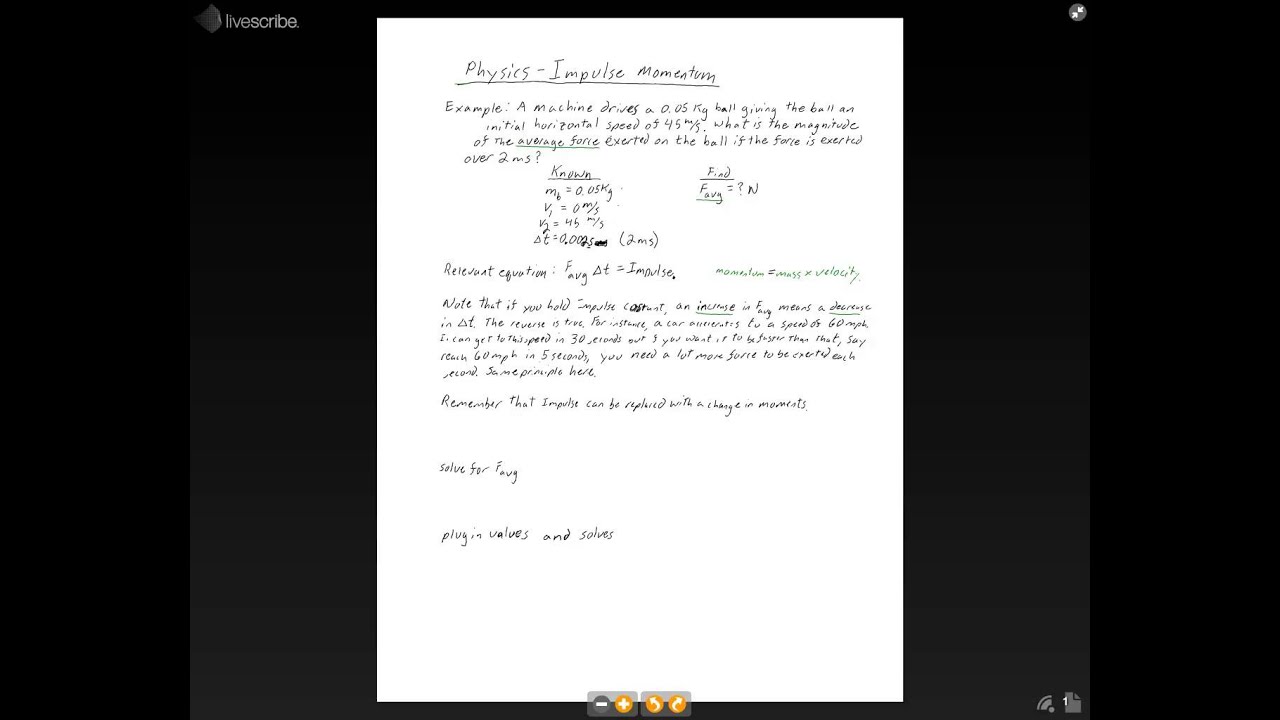 livescribe.
Physics - Impulse Momentum
Example: A machine drives a 0.05 Kg ball giving the ball an
initial horizontal speed of 45 m/s. What is the magnitude
of the average force exerted on the ball if the force is exerted
over 2 ms?
Known
Find
m_b = 0.05 Kg
F_avg = ? N
V_1 = 0 m/s
V_2 = 45 m/s
Δt = 0.002s (2ms)
Relevant equation: F_avg Δt = Impulse.
momentum = mass x velocity.
Note that if you hold Impulse constant, an increase in F_avg means a decrease
in Δt. The reverse is true. For instance, a car accelerates to a speed of 60 mph.
It can get to this speed in 30 seconds but if you want it to be faster than that, say
reach 60 mph in 5 seconds, you need a lot more force to be exerted each
second. Same principle here.
Remember that Impulse can be replaced with a change in moments.
solve for F_avg
plug in values and solves
1